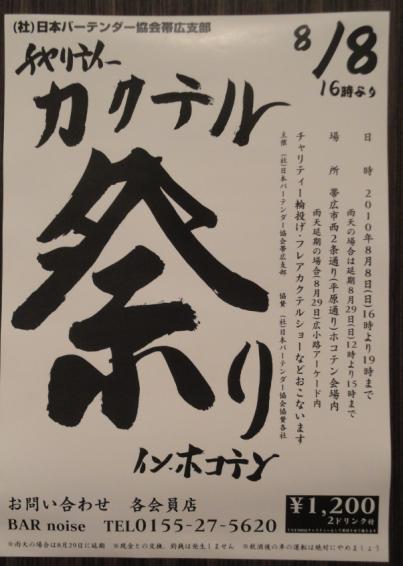 (社)日本バーテンダー協会帯広支部
8/8
16時より
チャリティー
カクテル
祭り
イン・ホコテン
日 時 2010年8月8日(日)16時より19時まで
雨天の場合は延期8月29日(日)12時より15時まで
場 所 帯広市西2条通り(平原通り)ホコテン会場内
雨天延期の場合(8月29日)広小路アーケード内
チャリティー輪投げ・フレアカクテルショーなどおこないます
主催 (社)日本バーテンダー協会帯広支部 協賛 (社)日本バーテンダー協会協賛各社
お問い合わせ 各会員店
BAR noise TEL0155-27-5620
¥1,200
2ドリンク付
※雨天の場合は8月29日に延期 ※現金との交換、釣銭は発生しません ※飲酒後の車の運転は絶対にやめましょう